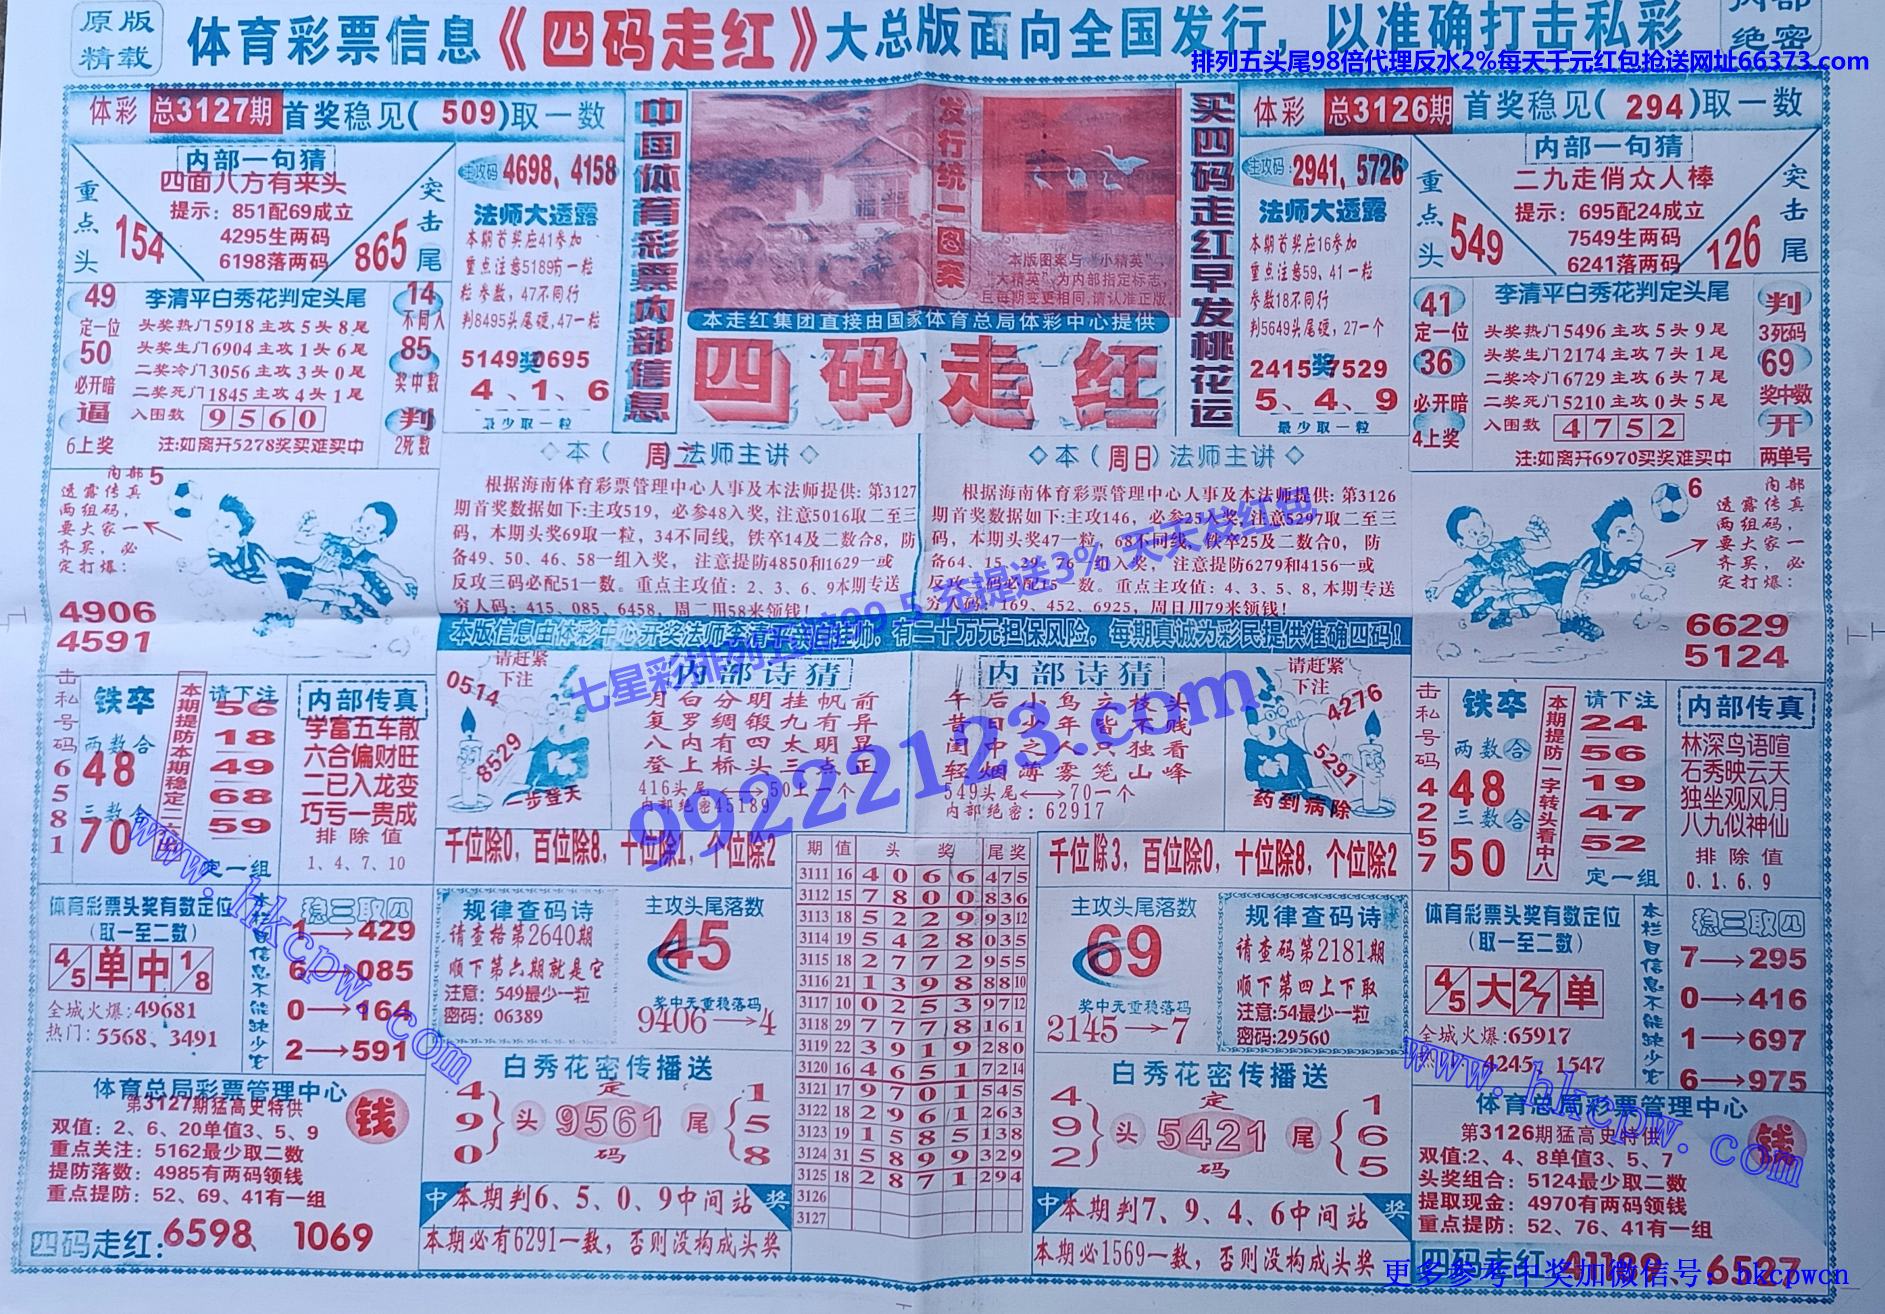 原版
精载
体育彩票信息《四码走红》大总版面向全国发行，以准确打击私彩
绝密
排列五头尾98倍代理反水2%每天千元红包抢送网址66373.com
体彩 总3127期 首奖稳见(509)取一数
内部一句猜
四面八方有来头
提示：851配69成立
4295生两码
6198落两码
重点头
154
突击尾
865
主攻码 4698、4158
法师大透露
本期首奖应41参加
重点注意5189有一粒
粒参数，47不同行
判8495头尾硬，47一粒
5149奖0695
4、1、6
最少取一粒
49
定一位
50
必开暗
逼
6上奖
李清平白秀花判定头尾
头奖热门5918主攻5头8尾
头奖生门6904主攻1头6尾
二奖冷门3056主攻3头0尾
二奖死门1845主攻4头1尾
入围数 9560
注:如离开5278奖买难买中
14
不同入
85
奖中数
判
2死数
中国体育彩票内部信息
发行统一图案
本版图案与“小精英”
“大精英”为内部指定标志，
且每期变更相同，请认准正版
本走红集团直接由国家体育总局体彩中心提供
四码走红
买四码走红早发桃花运
体彩 总3126期 首奖稳见(294)取一数
主攻码: 2941、5726
法师大透露
本期首奖应16参加
重点注意59、41一粒
参数18不同行
判5649头尾硬，27一个
2415奖7529
5、4、9
最少取一粒
内部一句猜
二九走俏众人棒
提示：695配24成立
7549生两码
6241落两码
重点头
549
突击尾
126
41
定一位
36
必开暗
4上奖
李清平白秀花判定头尾
头奖热门5496主攻5头9尾
头奖生门2174主攻7头1尾
二奖冷门6729主攻6头7尾
二奖死门5210主攻0头5尾
入围数 4752
注:如离开6970买奖难买中
判
3死码
69
奖中数
开
两单号
内部
透露传真
两组码，
要大家一
齐买，必
定打爆：
5
4906
4591
◇本（周二）法师主讲◇
根据海南体育彩票管理中心人事及本法师提供：第3127
期首奖数据如下:主攻519，必参48入奖，注意5016取二至三
码，本期头奖69取一粒，34不同线，铁卒14及二数合8，防
备49、50、46、58一组入奖， 注意提防4850和1629一或
反攻三码必配51一数。重点主攻值：2、3、6、9本期专送
穷人码：415、085、6458，周二用58来领钱！
◇本（周日）法师主讲◇
根据海南体育彩票管理中心人事及本法师提供：第3126
期首奖数据如下:主攻146，必参25入奖，注意5297取二至三
码，本期头奖47一粒，68不同线，铁卒25及二数合0，防
备64、15、29、76一组入奖， 注意提防6279和4156一或
反攻三码必配15一数。重点主攻值：4、3、5、8，本期专送
穷人码：169、452、6925，周日用79来领钱！
6
内部
透露传真
两组码，
要大家一
齐买，必
定打爆：
6629
5124
七星彩排列五赔99.5 充提送3% 天天发红包
99222123.com
击私号码6581
铁卒
两数合
48
三数合
70
请下注
56
18
49
68
59
定一组
内部传真
学富五车散
六合偏财旺
二已入龙变
巧亏一贵成
排除值
1、4、7、10
请赶紧
下注
0514
8529
一步登天
内部诗猜
月白分明挂帆前
复罗绸锻九有异
八内有四太明显
登上桥头三点正
416头尾⟷50上一个
内部绝密45189
内部诗猜
午后小鸟立枝头
昔日少年皆不贱
闺中之人只独看
轻烟薄雾笼山峰
549头尾⟷70一个
内部绝密：62917
请赶紧
下注
4276
5291
药到病除
击私号码4257
铁卒
两数合
48
三数合
50
本期提防一字转头看中八
请下注
24
56
19
47
52
定一组
内部传真
林深鸟语喧
石秀映云天
独坐观风月
八九似神仙
排除值
0、1、6、9
千位除0，百位除8，十位除1，个位除2
千位除3，百位除0，十位除8，个位除2
体育彩票头奖有数定位
(取一至二数)
4/5 单 中 1/8
全城火爆:49681
热门：5568、3491
本栏目信息不能缺少它
稳三取四
1→429
6→085
0→164
2→591
规律查码诗
请查格第2640期
顺下第六期就是它
注意：549最少一粒
密码：06389
主攻头尾落数
45
奖中无重稳落码
9406→4
期 值 头奖 尾奖
3111 16 4066 475
3112 15 7800 836
3113 18 5229 9312
3114 19 5428 035
3115 18 2772 955
3116 21 1398 8810
3117 10 0253 9712
3118 29 7778 161
3119 22 3919 280
3120 16 4651 7214
3121 17 9701 545
3122 18 2961 263
3123 19 1585 138
3124 31 5899 329
3125 18 2871 294
3126
3127
主攻头尾落数
69
奖中无重稳落码
2145→7
规律查码诗
请查码第2181期
顺下第四上下取
注意:54最少一粒
密码:29560
体育彩票头奖有数定位
(取一至二数)
4/5 大 2/7 单
全城火爆:65917
4245、1547
本栏目信息不能缺少它
稳三取四
7→295
0→416
1→697
6→975
www.hkcpw.com
www.hkcpw.com
体育总局彩票管理中心
第3127期猛高史特供
双值：2、6、20单值3、5、9
重点关注：5162最少取二数
提防落数：4985有两码领钱
重点提防：52、69、41有一组
钱
四码走红：6598、1069
白秀花密传播送
490
头
定
9561
码
尾
158
中 本期判6、5、0、9中间站 奖
本期必有6291一数，否则没构成头奖
白秀花密传播送
492
头
定
5421
码
尾
165
中 本期判7、9、4、6中间站 奖
本期必1569一数，否则没构成头奖
体育总局彩票管理中心
第3126期猛高史特供
双值:2、4、8单值3、5、7
头奖组合：5124最少取二数
提取现金：4970有两码领钱
重点提防：52、76、41有一组
钱
四码走红 6527
更多参考中奖加微信号：hkcpwcn